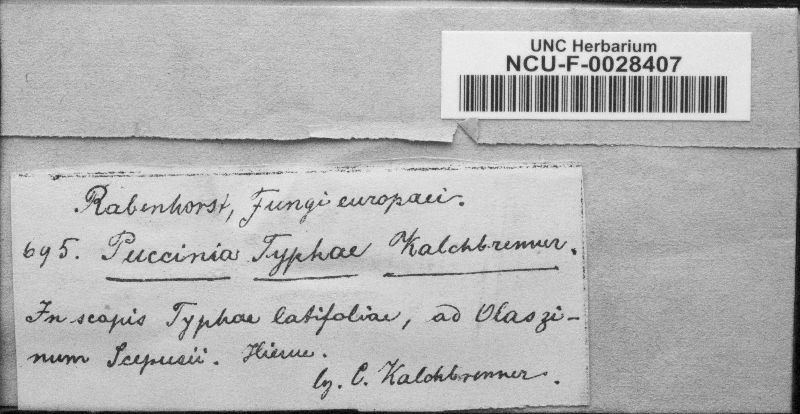 UNC Herbarium
NCU-F-0028407
Rabenhorst, Fungi europaei.
695. Puccinia Typhae Kalchbrenner.
In scapis Typhae latifoliae, ad Olaszi-
num Scepusii. Hieme.
lg. C. Kalchbrenner.